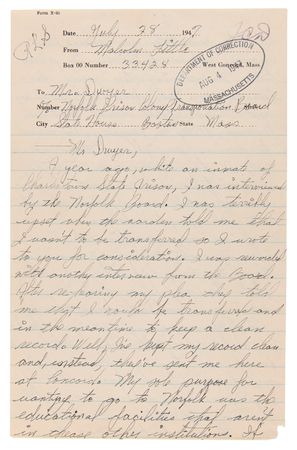 Form X-81
Date July 28 1947
From Malcolm Little
Box 00 Number 33428 West Concord, Mass.
DEPARTMENT OF CORRECTION
AUG 4
MASSACHUSETTS
To Mr. Dwyer
Number Norfolk Prison Colony Transportation Board
City State House, Boston State Mass
Mr Dwyer,
A year ago, while an inmate of
Charlestown State Prison, I was interviewed
by the Norfolk Board. I was terribly
upset when the warden told me that
I wasn't to be transferred so I wrote
to you for consideration. I was rewarded
with another interview from the Board.
After rehearing my plea they told
me that I would be transferred and
in the meantime to keep a clean
record. Well, I've kept my record clean
and, instead, they've sent me here
at Concord. My sole purpose for
wanting to go to Norfolk was the
educational facilities that aren't
in these other institutions. If